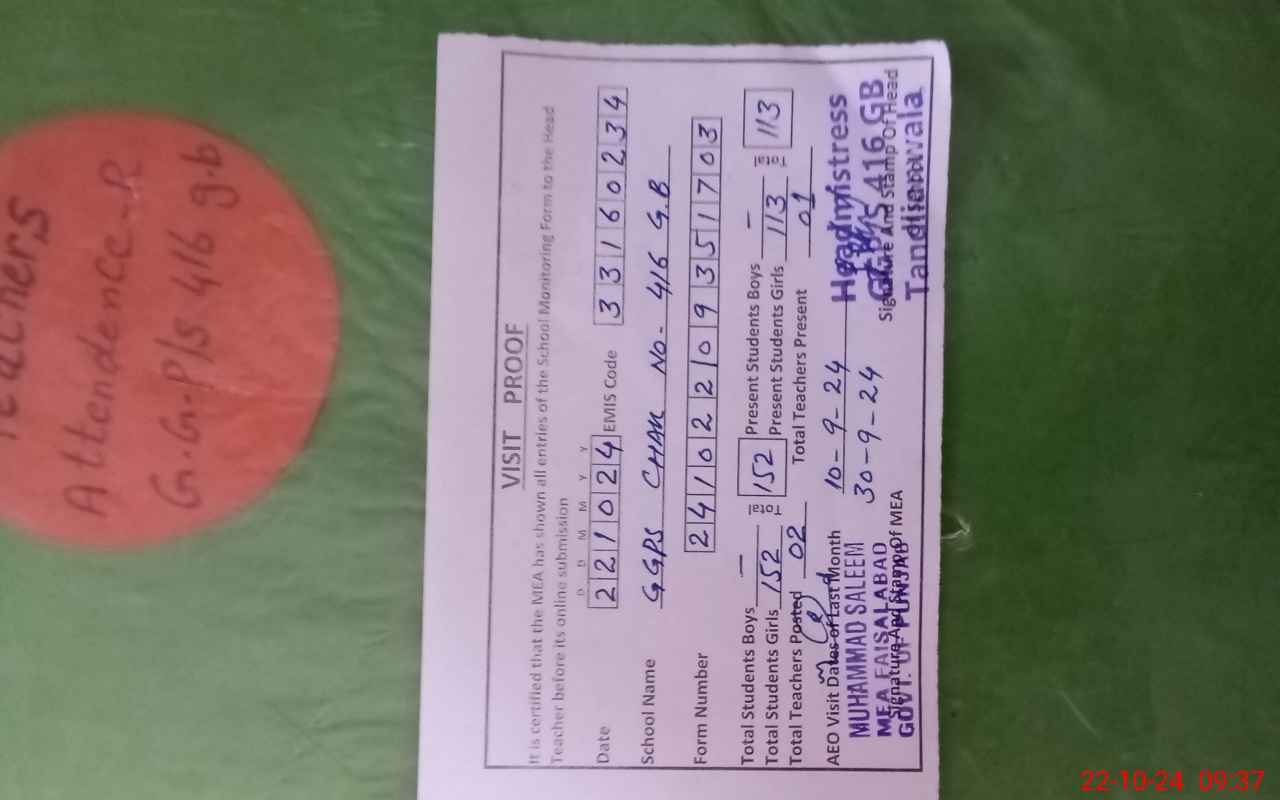 Attendence-R
G.G-P/S 416 g.b
VISIT PROOF
It is certified that the MEA has shown all entries of the School Monitoring Form to the Head
Teacher before its online submission
D D M M Y Y
Date 221024 EMIS Code 33160234
School Name GGPS CHAK NO- 416 G.B
Form Number 241022109351703
Total Students Boys — Total 152 Present Students Boys — Total 113
Total Students Girls 152 Present Students Girls 113
Total Teachers Posted 02 Total Teachers Present 01
AEO Visit Dates of Last Month 10-9-24
30-9-24
MUHAMMAD SALEEM
MEA FAISALABAD
GOVT. OF PUNJAB
Signature And Stamp Of MEA
Headmistress
GGPS 416 GB
Tandlianwala
Signature And Stamp Of Head
22-10-24 09:37